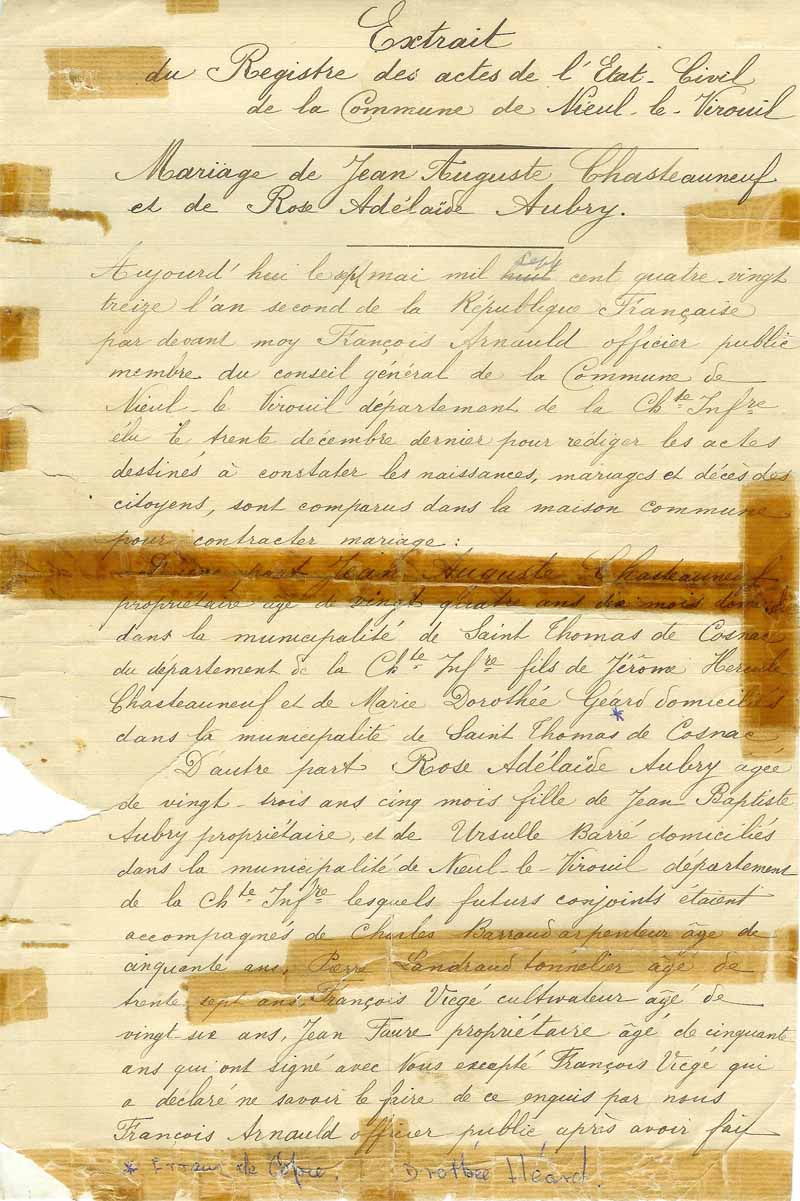 Extrait
du Registre des actes de l'Etat-Civil
de la Commune de Nieul-le-Virouil
Mariage de Jean Auguste Chasteauneuf
et de Rose Adélaïde Aubry.
Aujourd'hui le sept mai mil huit sept cent quatre-vingt
treize l'an second de la République Française
par devant moy François Arnauld officier public
membre du conseil général de la Commune de
Nieul-le Virouil département de la Chte Infre
élu le trente décembre dernier pour rédiger les actes
destinés à constater les naissances, mariages et décès des
citoyens, sont comparus dans la maison commune
pour contracter mariage :
D'une part Jean Auguste Chasteauneuf
propriétaire âgé de vingt quatre ans dix mois
dans la municipalité de Saint Thomas de Cosnac
du département de la Chte Infre fils de Jérôme Hercule
Chasteauneuf et de Marie Dorothée Géard domiciliés
*
dans la municipalité de Saint Thomas de Cosnac
D'autre part Rose Adélaïde Aubry agée
de vingt-trois ans cinq mois fille de Jean Baptiste
Aubry propriétaire, et de Ursulle Barré domiciliés
dans la municipalité de Nieul-le-Virouil département
de la Chte Infre lesquels futurs conjoints étaient
accompagnés de Charles Barraud arpenteur âge de
cinquante ans, Pierre Landraud tonnelier âgé de
trente sept ans François Viegé cultivateur âgé de
vingt-six ans, Jean Faure propriétaire âgé de cinquante
ans qui ont signé avec Nous excepté François Viegé qui
a déclaré ne savoir le faire de ce enquis par nous
François Arnauld officier public après avoir fait
* Erreur de Copie. Drothée Héard.